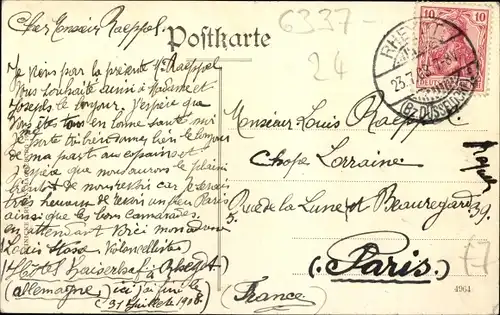 Cher Monsieur Raeppel
Postkarte
6337-
24
Je viens par la présente Mr Raeppel
Vous souhaité aussi à Madame et
Joseph le bonjour. J'espère que
Vous êtes tous en bonne santé
Je porte très bien donnez bien le bonjour
de ma part aux copains et
j'espère que nous aurons le plaisir
bientôt de nous revoir car je serais
très heureux de revoir un peu Paris
ainsi que les bons camarades.
en attendant Voici mon adresse
Louis Violoncelliste
Hôtel Kaiserhof à Rheydt
(allemagne) ici j'ai fini le
31 Juillet 1908
Monsieur Louis Raeppel
Chope Lorraine
5. Rue de la Lune et Beauregard 39.
(Paris.)
(France.)
10 10
DEUTSCHES REICH
RHEYDT
(BZ. DÜSSELDORF)
77
4964